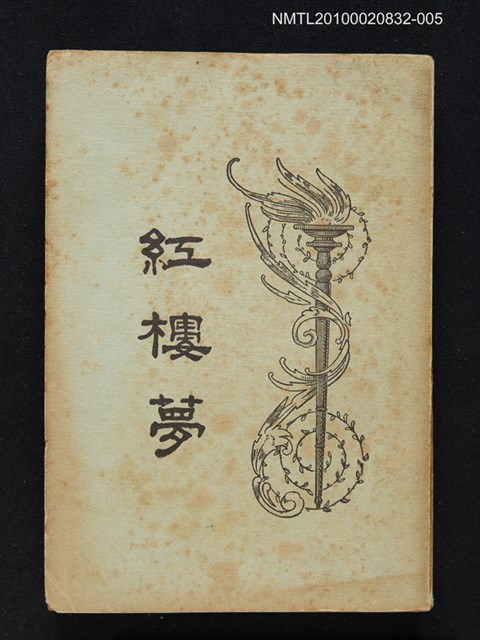 NMTL20100020832-005
紅樓夢